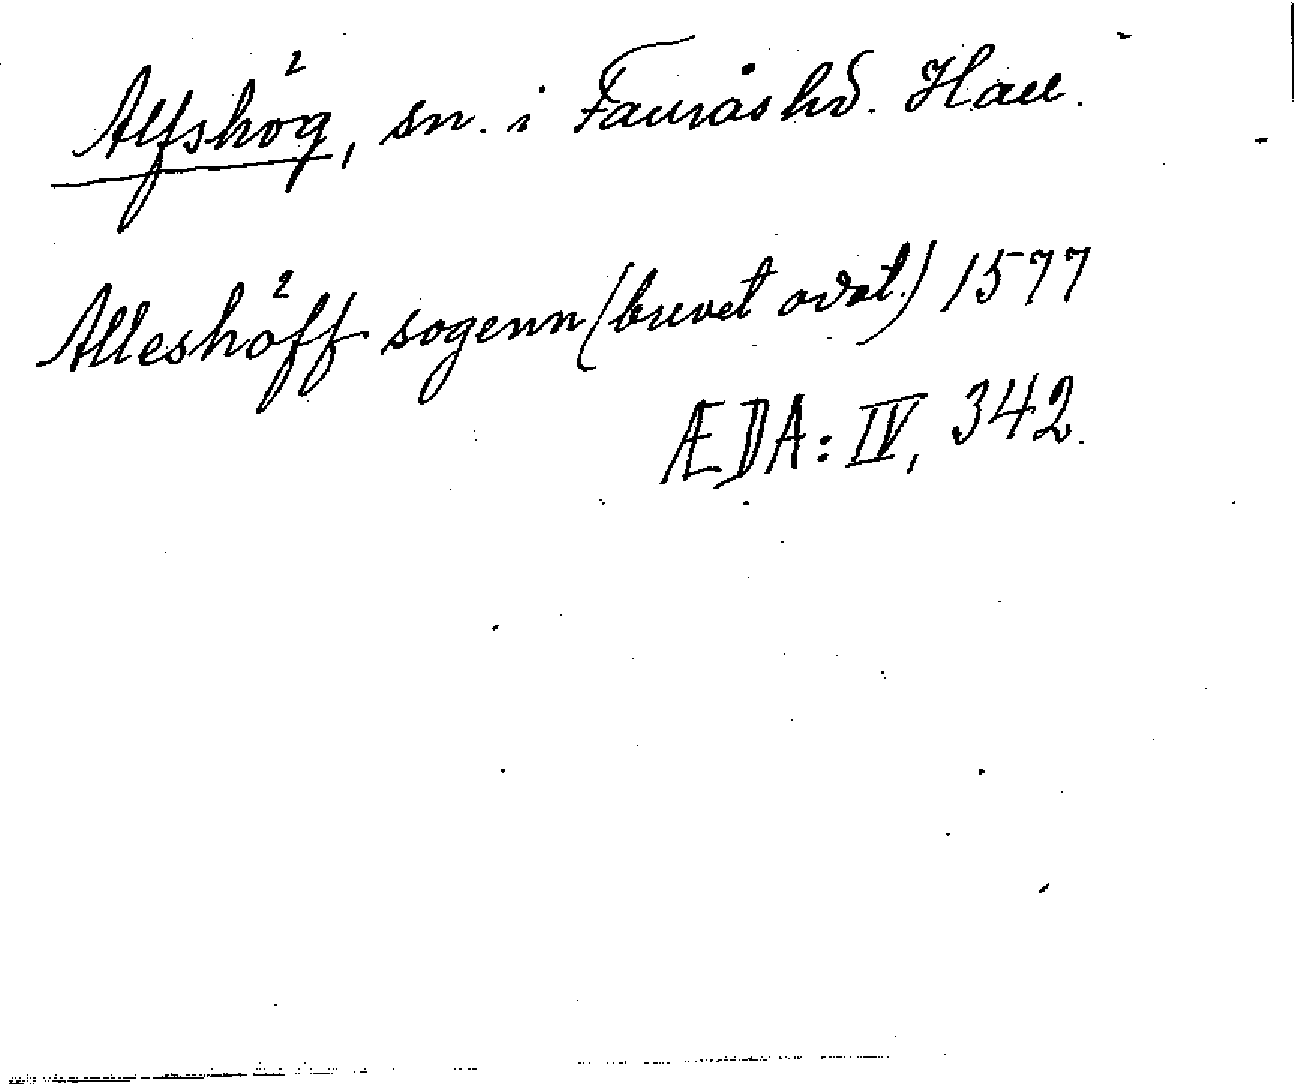 Alfshög, sn. i Faurås hd. Hall.
Alleshöff sogenn (brevet odat.) 1577
ÆDA: IV, 342.